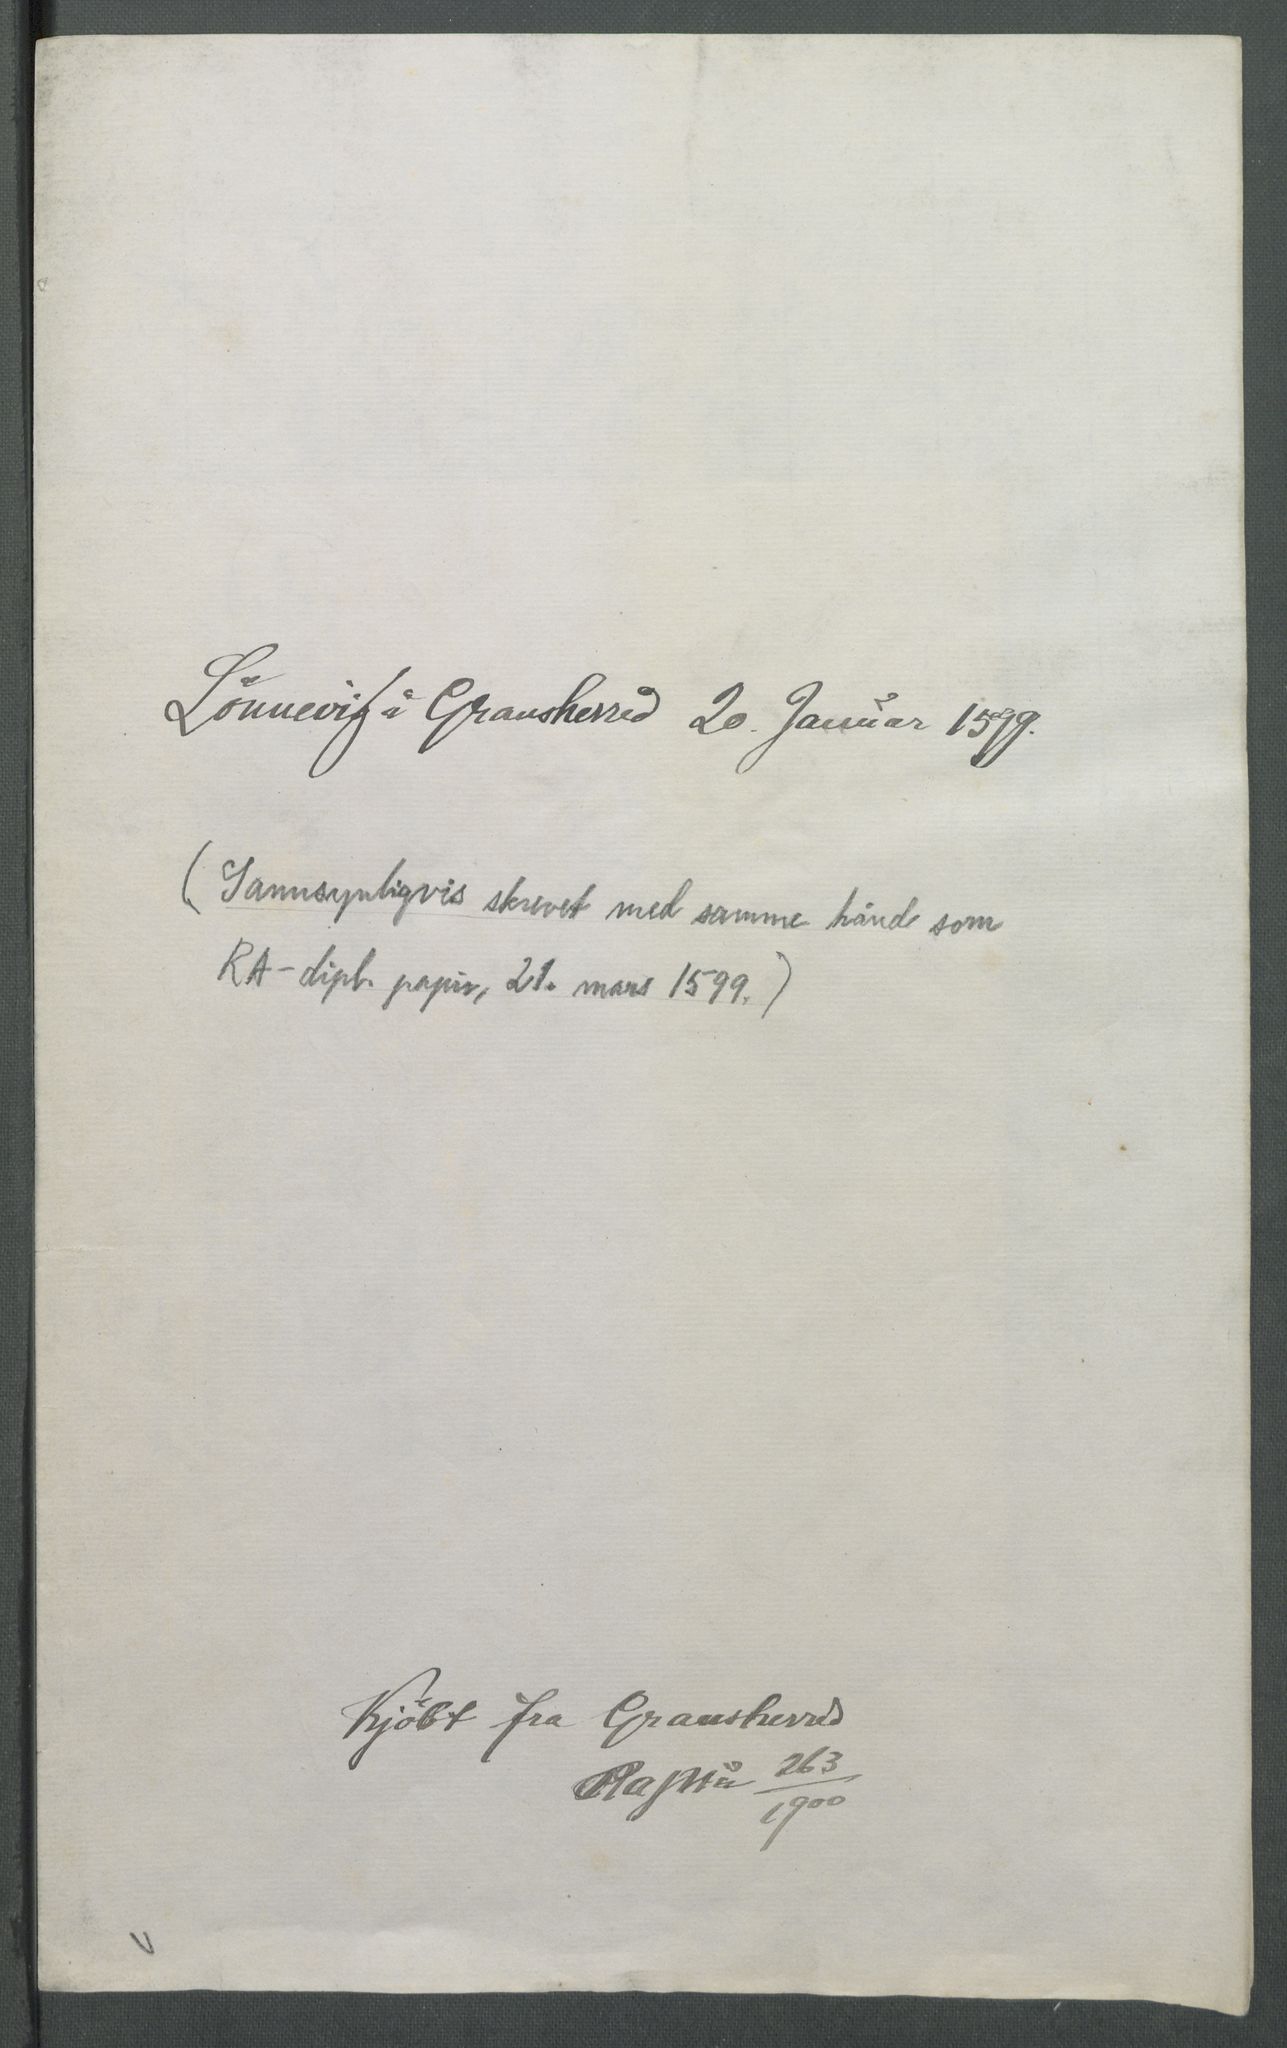 Lönnevik i Gransherred 20. Januar 1599.
(Sannsynligvis skrevet med samme hånd som
RA-dipl. papir, 21. mars 1599.)
Kjöbt fra Gransherred
263
1900